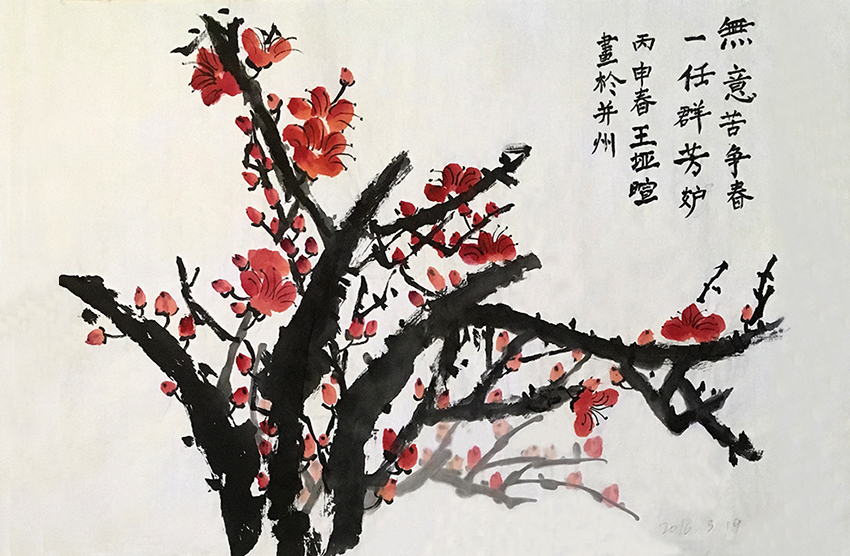 無意苦争春
一任群芳妒
丙申春王垭暄
畫於并州
2016 3 19